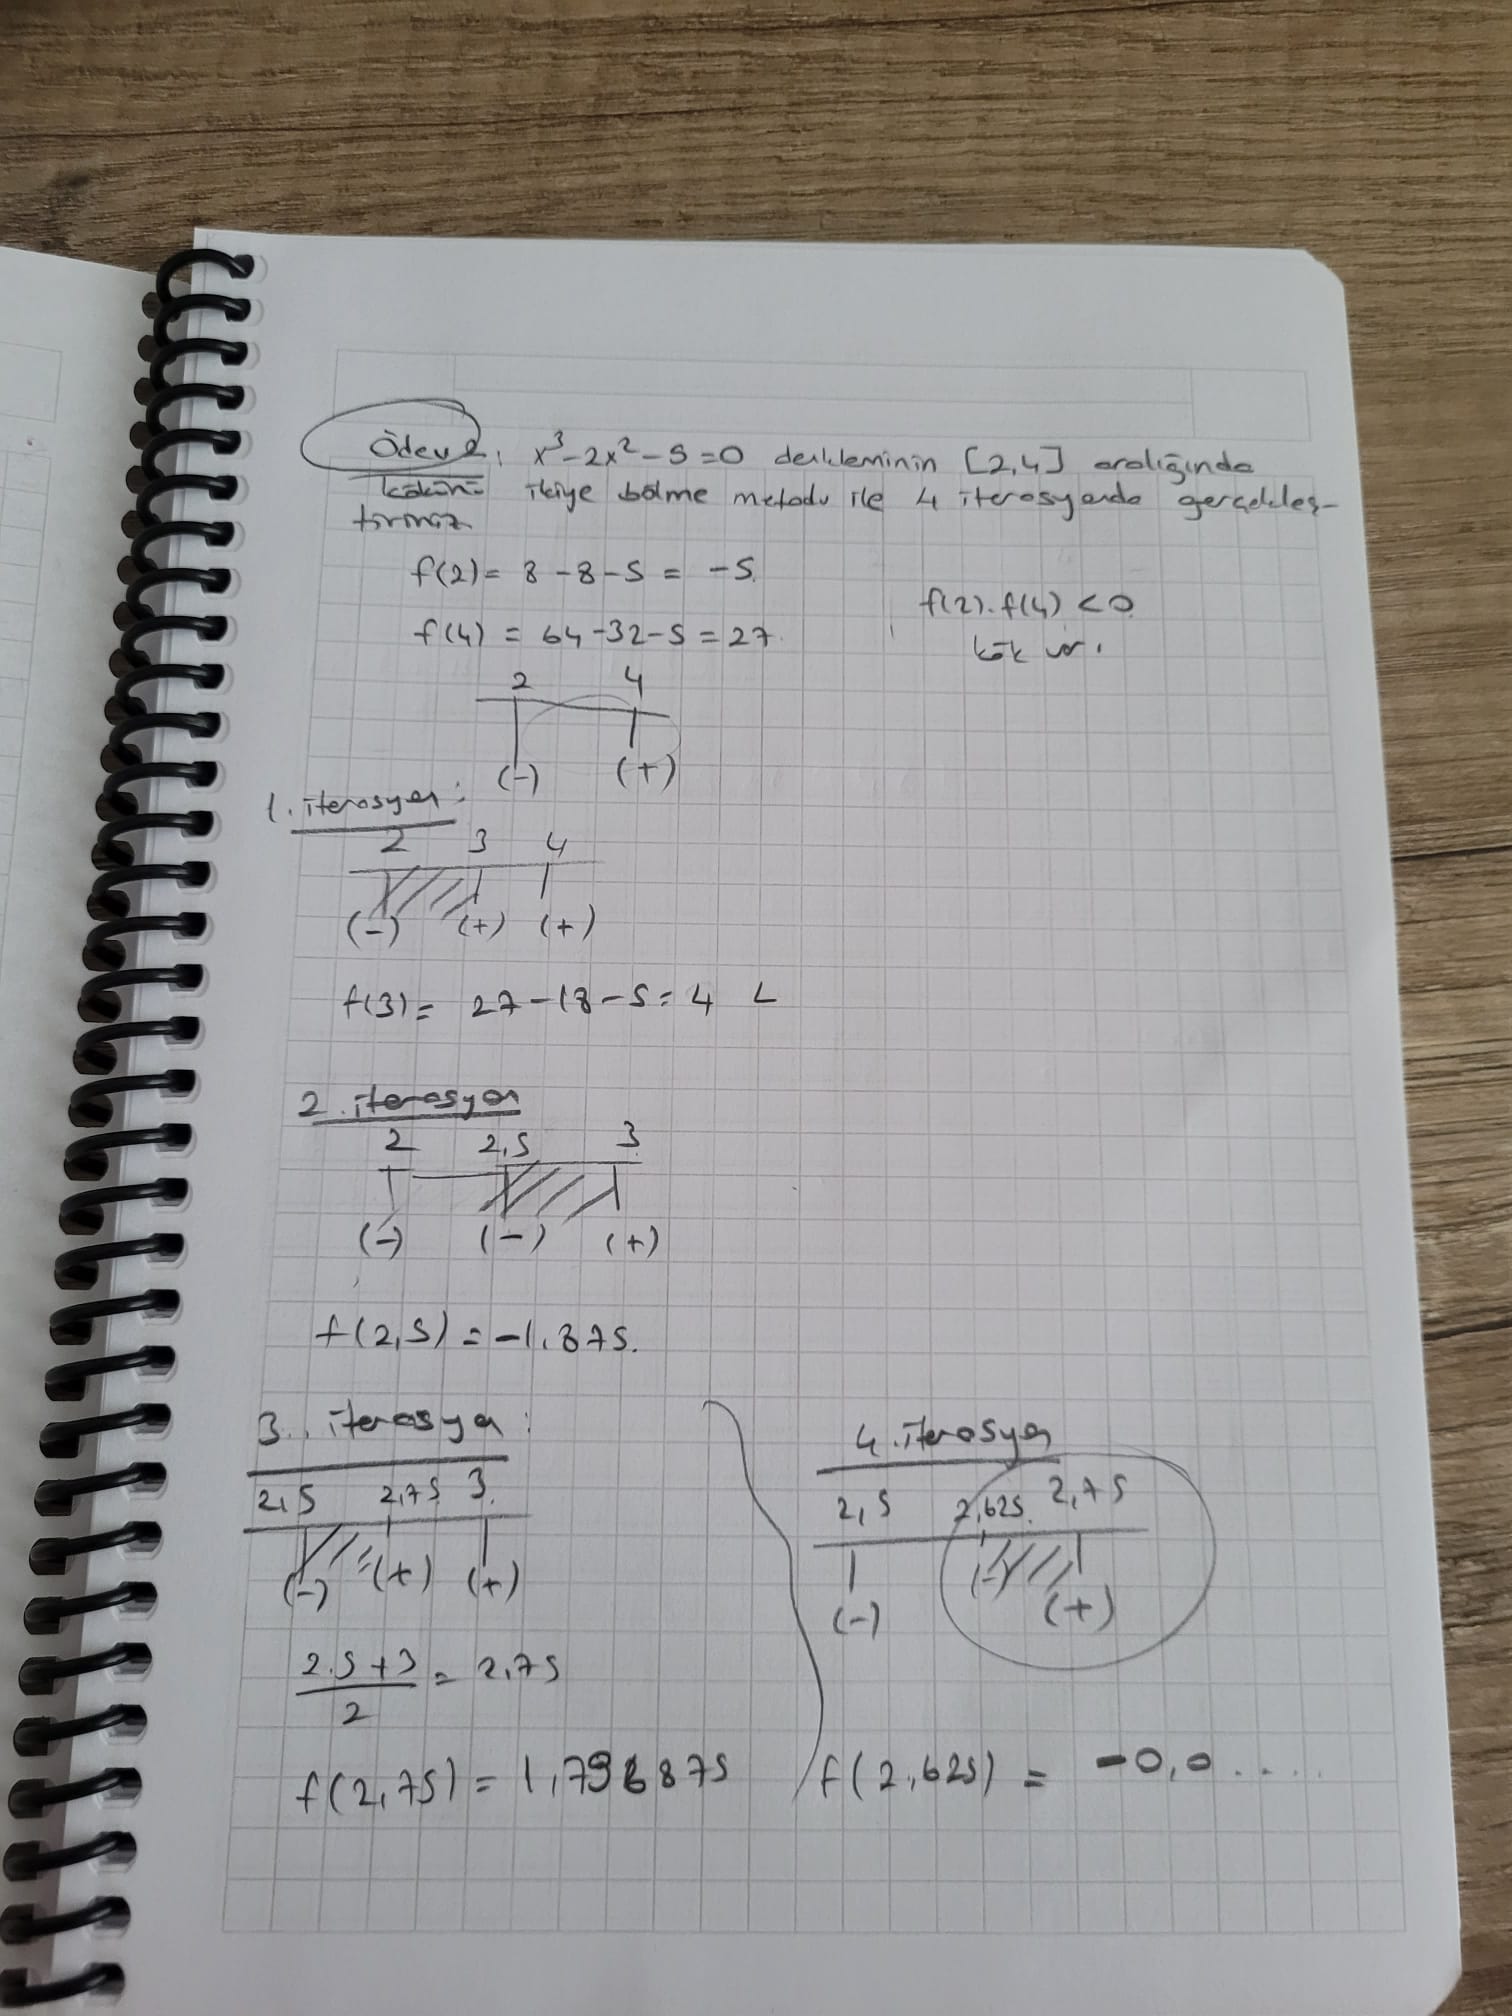 Ödev 2, x³-2x²-5=0 denkleminin [2,4] aralığında
kökünü ikiye bölme metodu ile 4 iterasyonda gerçekleş-
tiriniz
f(2)= 8-8-5 = -5
f(4) = 64-32-5=27
f(2).f(4) <0
kök var.
2 4
(-) (+)
1. iterasyon:
2 3 4
(-) (+) (+)
f(3)= 27-18-5=4
2. iterasyon
2 2,5 3
(-) (-) (+)
f(2,5) = -1.875.
3. iterasyon:
2,5 2,75 3
(-) (+) (+)
2.5+3 = 2,75
2
f(2,75) = 1,7968875
4. iterasyon
2,5 2,625 2,75
(-) (-) (+)
f(2,625) = -0,0 ....